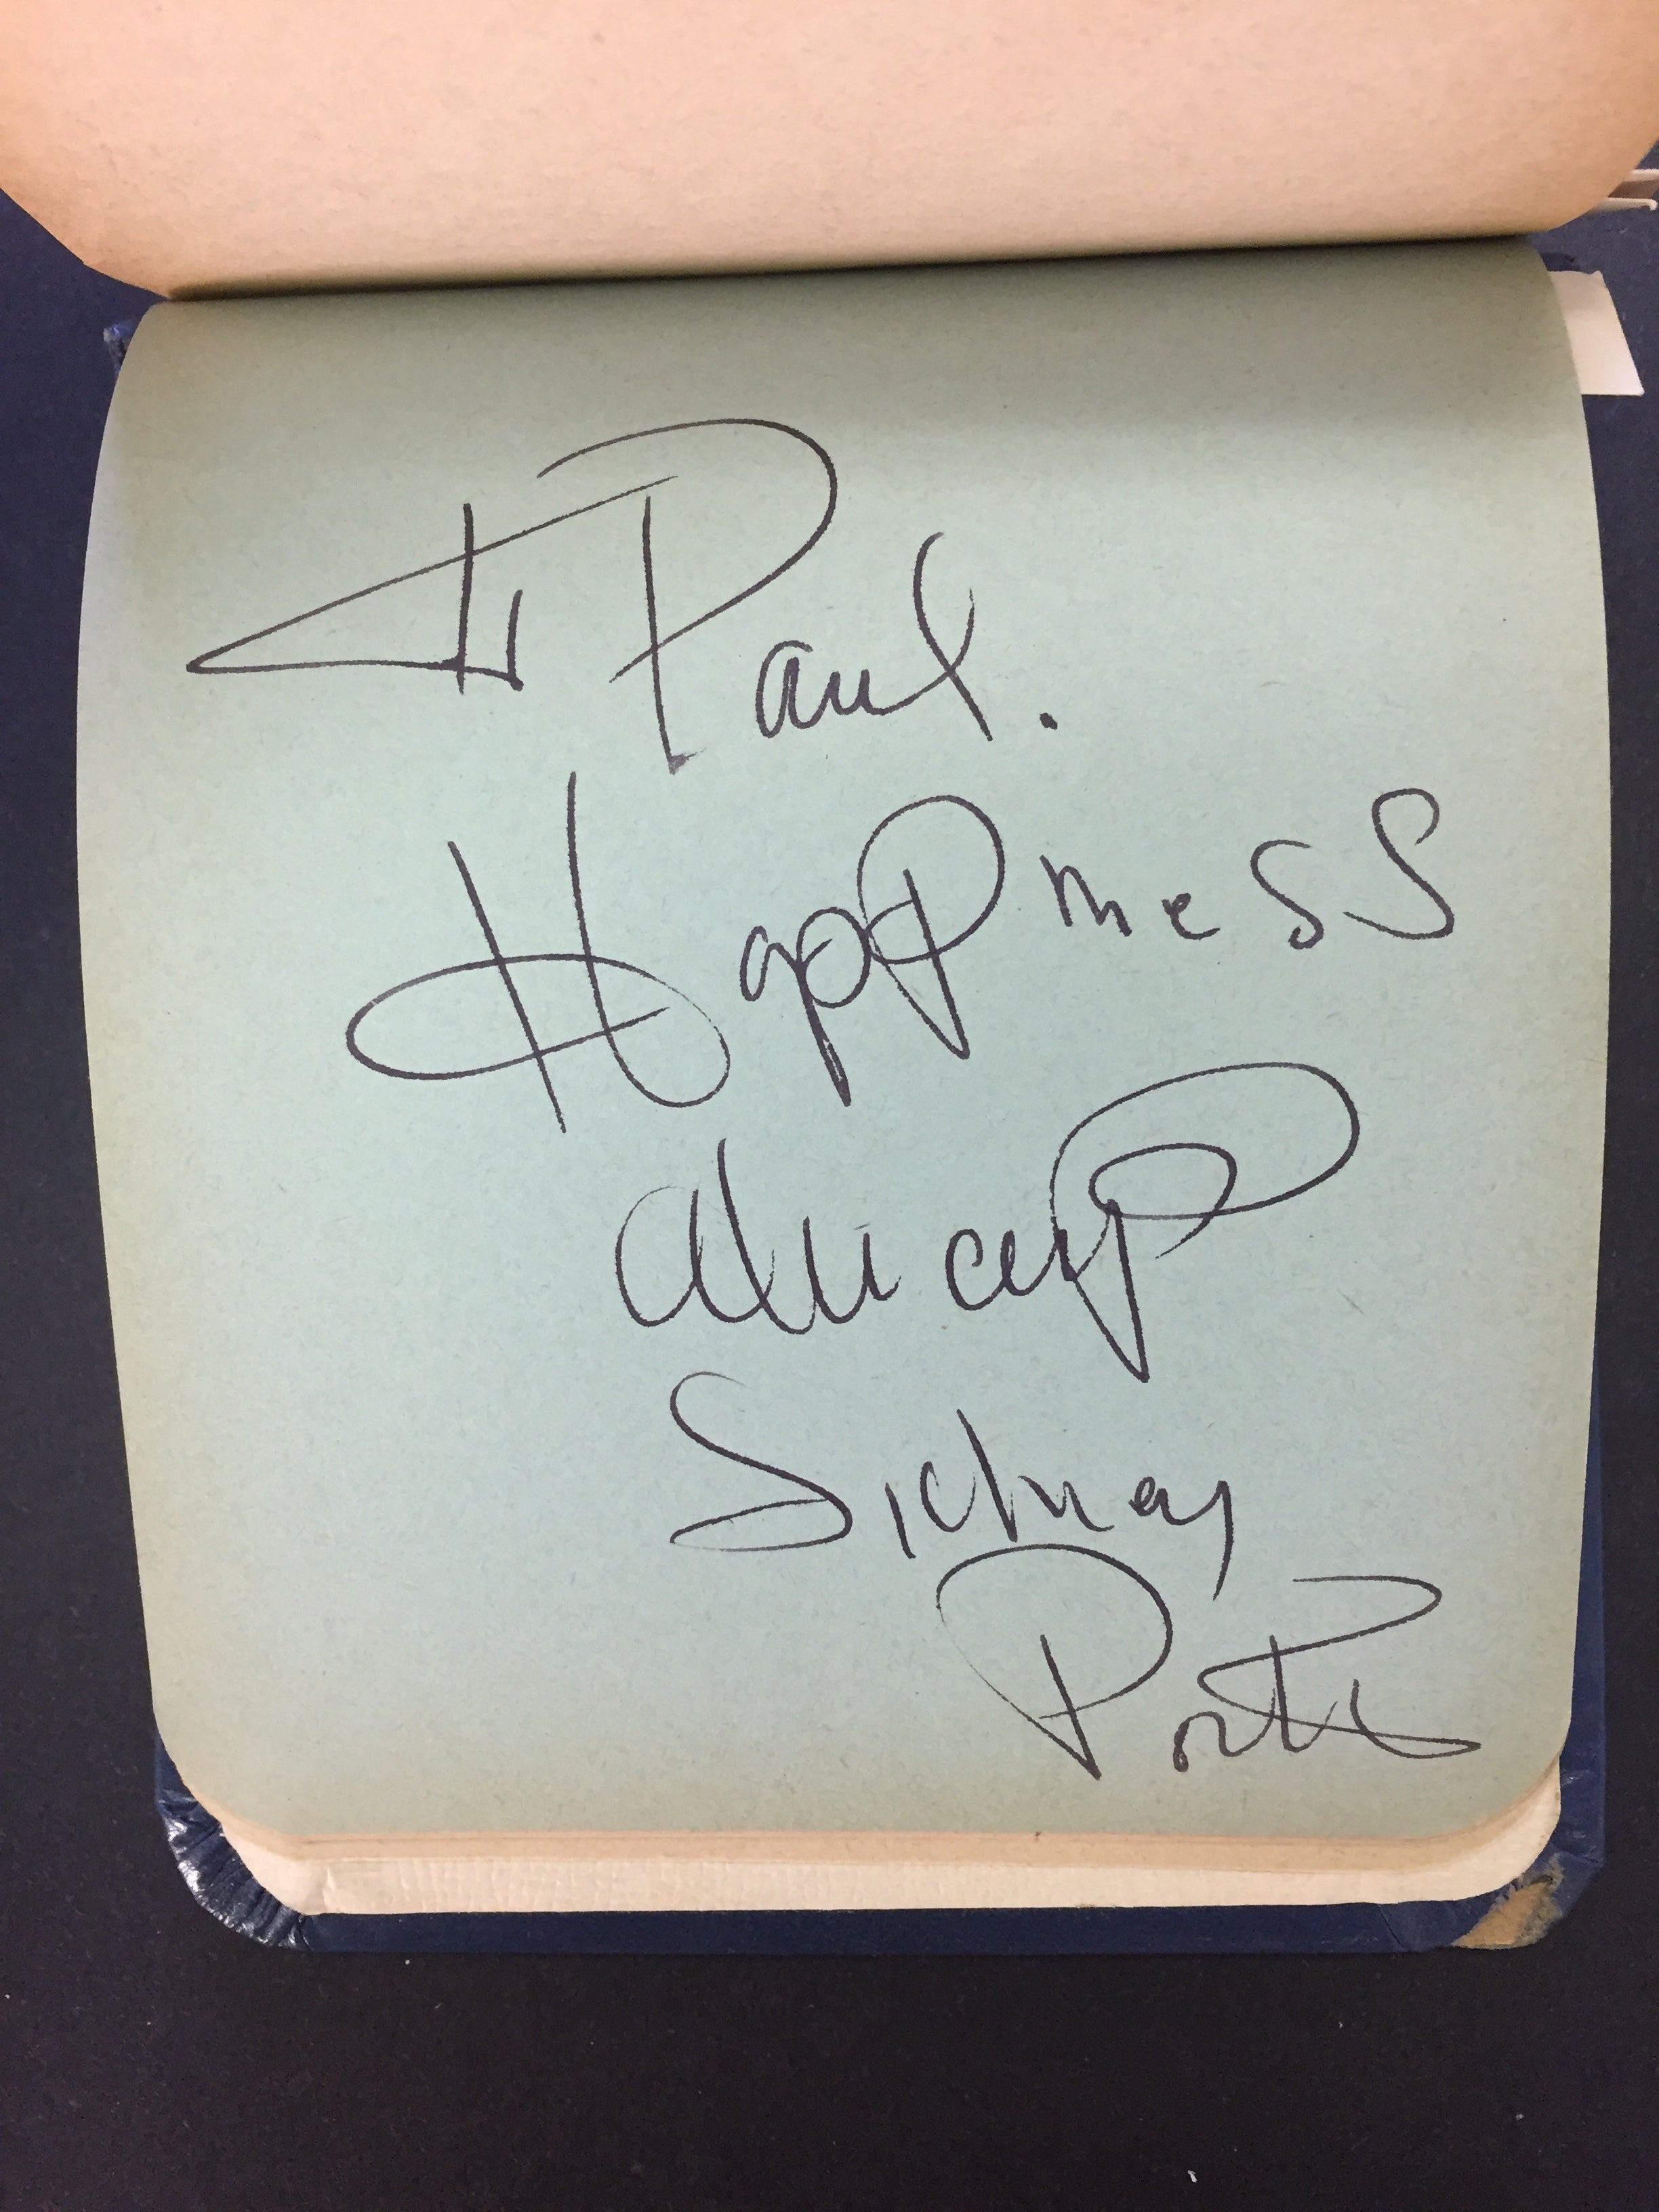 To Paul.
Happiness
always
Sidney
Poitier